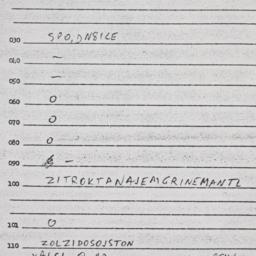 030 SPO,DN8ICE
040 —
050 —
060 O
070 O
080 O
090 –
100 ZITROKTANAJEAIGRINEMANTL
101 O
110 ZOLZIDOSOJSTON